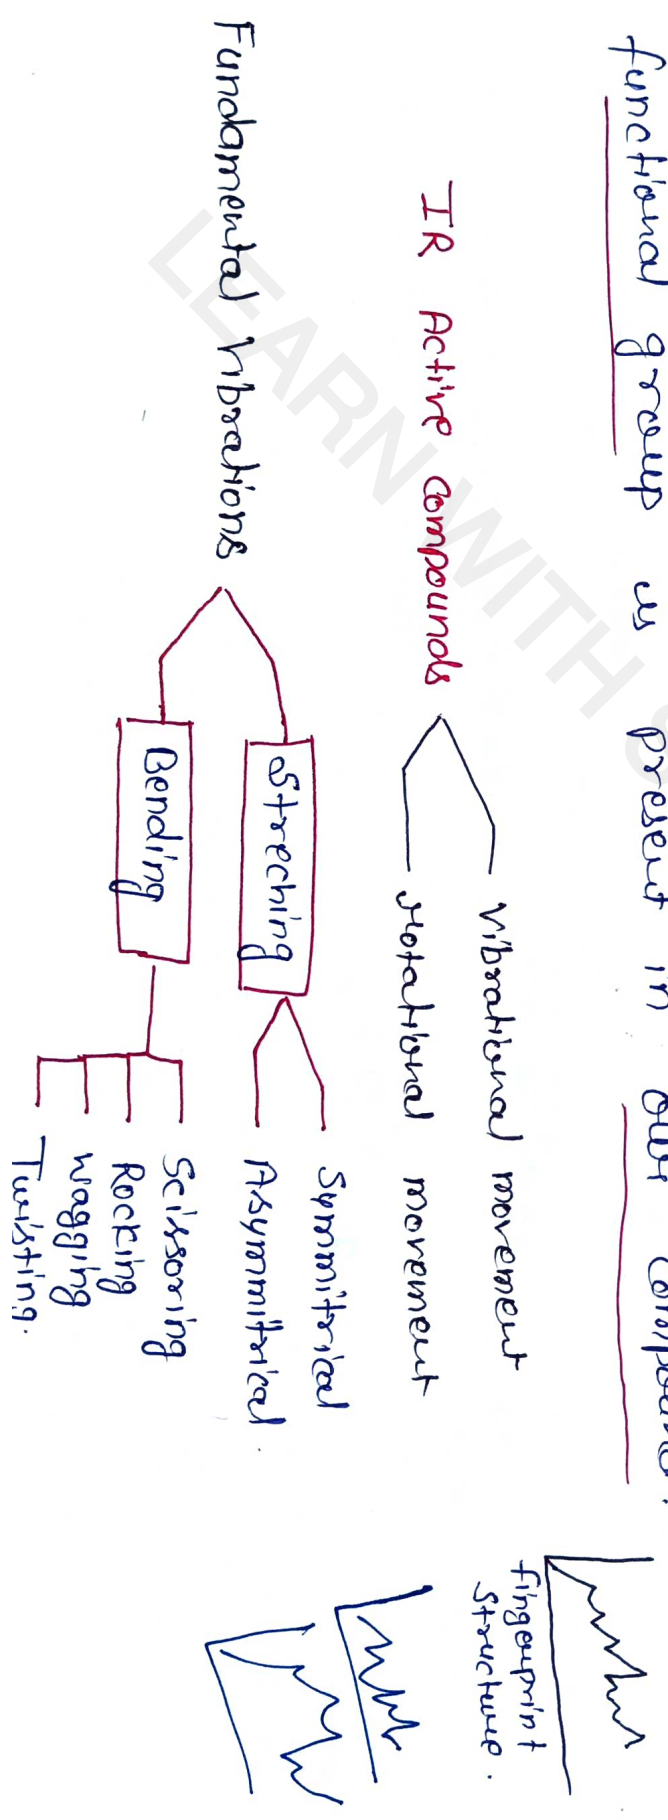 functional group is present in our compound.
fingerprint
structure.
IR Active compounds
vibrational movement
rotational movement
Fundamental Vibrations
Streching
Symmitrical
Asymmitrical
Bending
Scissoring
Rocking
Wagging
Twisting.
LEARN WITH S